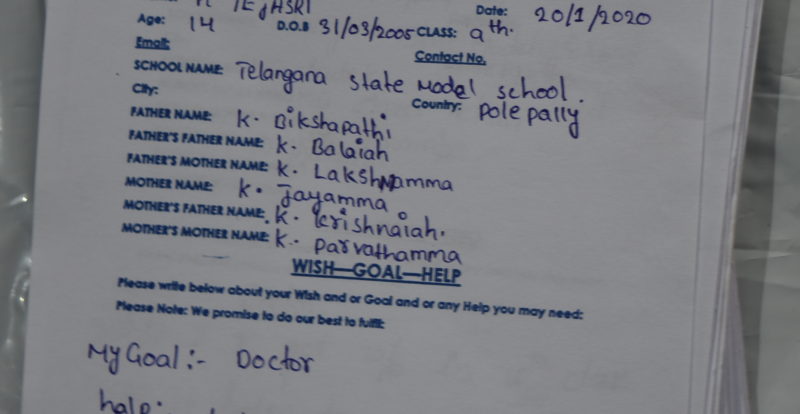 Date: 20/1/2020
Age: 14 D.O.B 31/03/2005 CLASS: 9th.
Email: Contact No.
SCHOOL NAME: Telangana state Model school.
City: Country: pole pally
FATHER NAME: K. Bikshapathi
FATHER'S FATHER NAME: K. Balaiah
FATHER'S MOTHER NAME: K. Lakshmamma
MOTHER NAME: K. Jayamma
MOTHER'S FATHER NAME: K. Krishnaiah.
MOTHER'S MOTHER NAME: K. parvathamma
WISH—GOAL—HELP
Please write below about your Wish and or Goal and or any Help you may need:
Please Note: We promise to do our best to fulfil:
My Goal:- Doctor